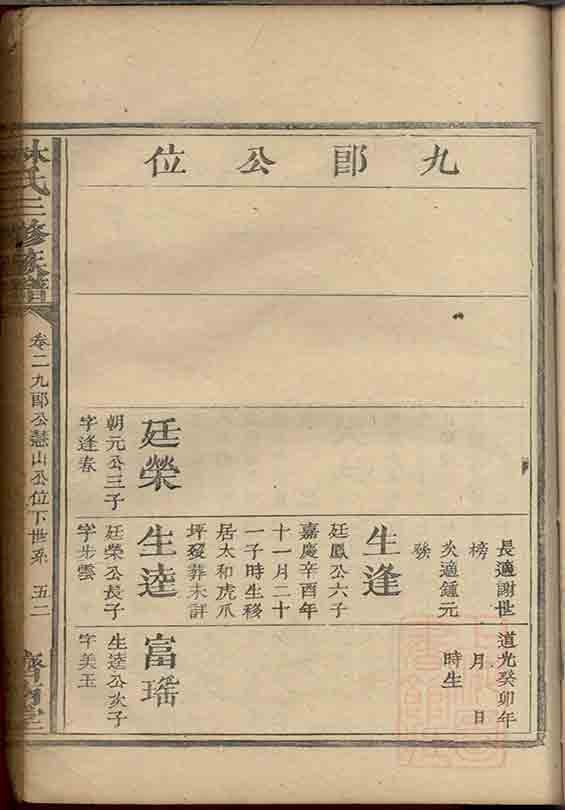 九郎公位
長適謝世
榜
次適鍾元
發
生逢
廷鳳公六子
嘉慶辛酉年
十一月二十
一子時生移
居太和虎爪
坪歿葬未詳
道光癸卯年
月 日
時生
廷榮
朝元公三子
字逢春
生逵
廷榮公長子
字步雲
富瑤
生逵公次子
字美玉
林氏三修族譜
卷二九郎公慧山公位下世系 五二